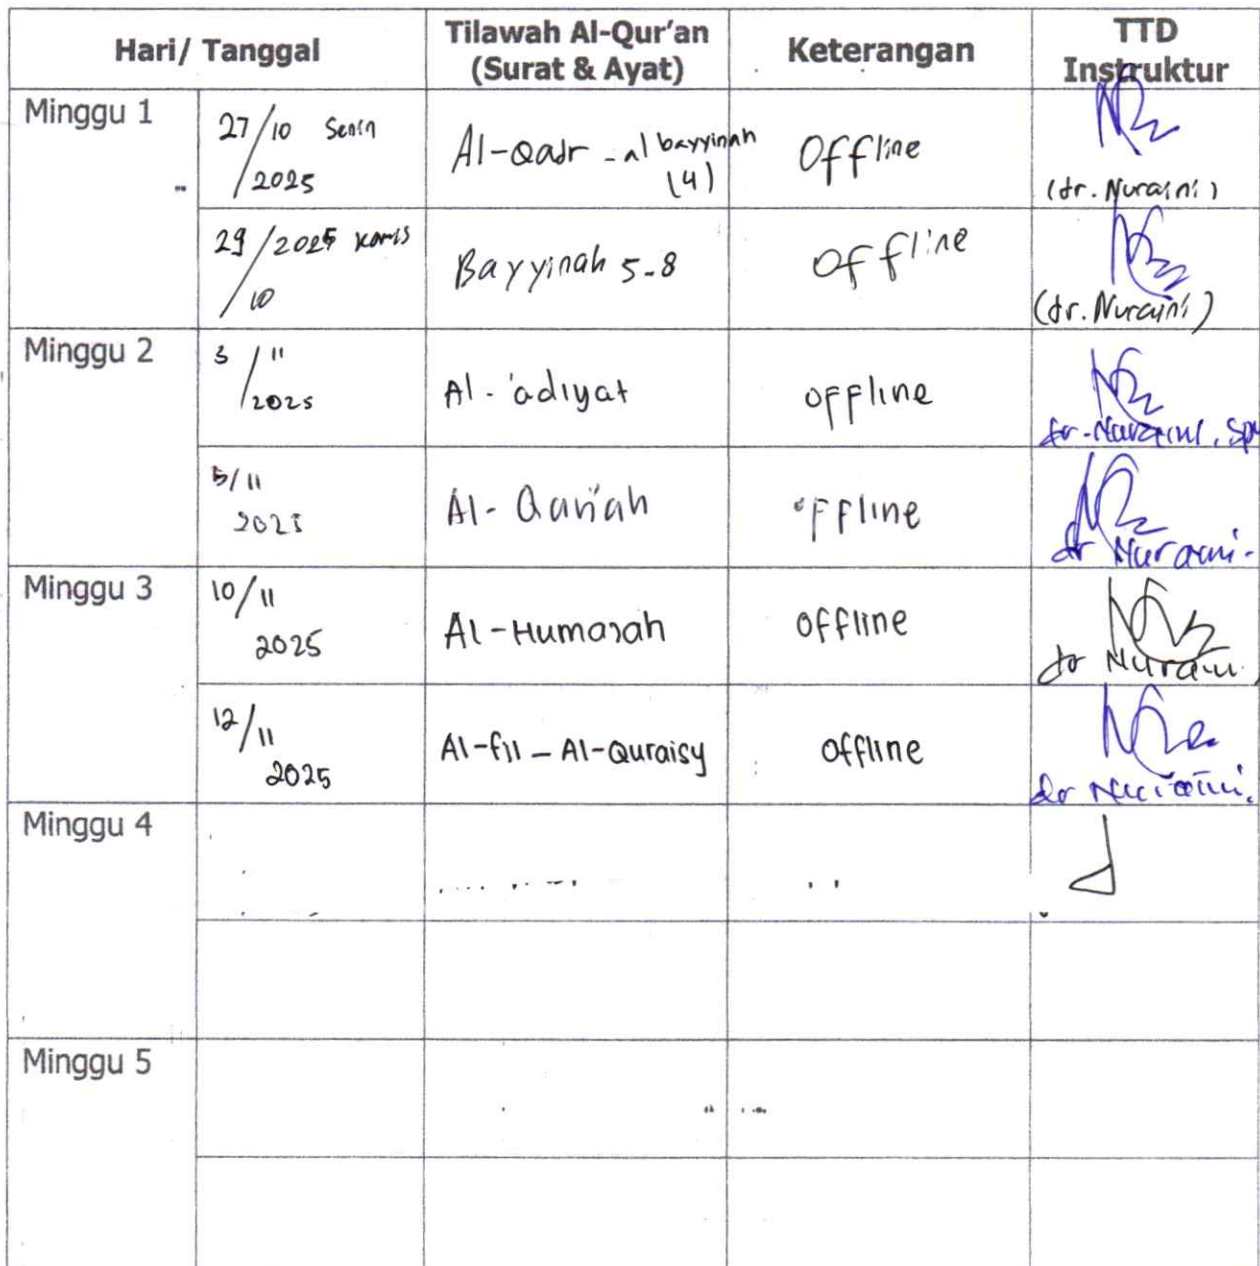 Hari/ Tanggal
Tilawah Al-Qur'an
(Surat & Ayat)
Keterangan
TTD
Instruktur
Minggu 1
27/10 Senin
/2025
Al-Qadr - al bayyinah
(4)
Offline
(dr. Nuraini)
29/2025 Kamis
/10
Bayyinah 5-8
Offline
(dr. Nuraini)
Minggu 2
3/11
/2025
Al-'adiyat
offline
dr. Nuraini, Sp
5/11
2025
Al-Qari'ah
offline
dr Nuraini.
Minggu 3
10/11
2025
Al-Humazah
Offline
dr Nuraini
12/11
2025
Al-fil - Al-Quraisy
Offline
dr Nuraini.
Minggu 4
Minggu 5